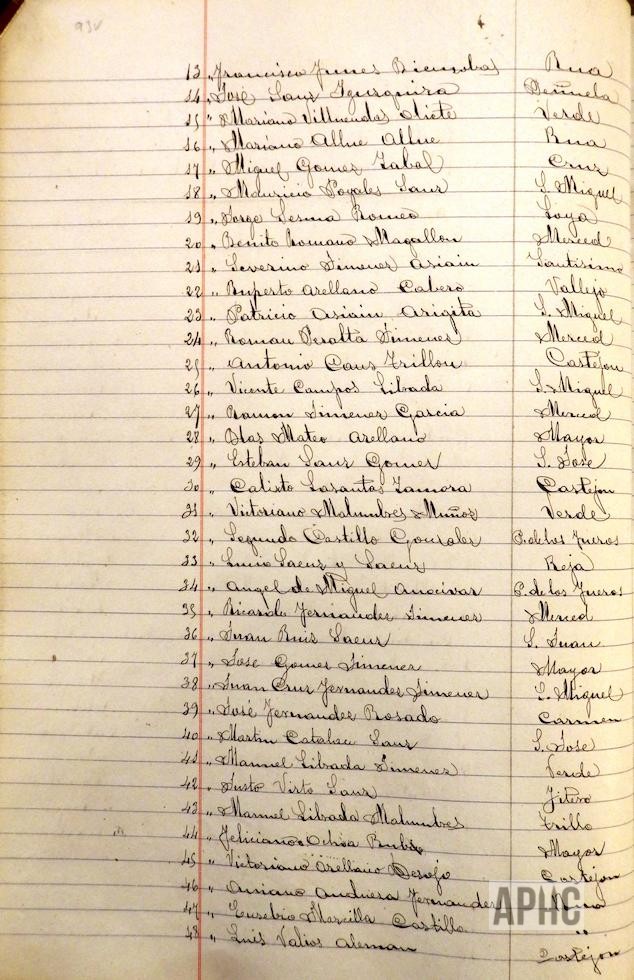 93V
13 „ Francisco Junes Bienzobas Rua
14 „ José Sanz Igurquiza Peñuela
15 " Mariano Villuendas Oliete Verde
16 „ Mariano Allue Allue Rua
17 „ Miguel Gomez Zabal Cruz
18 „ Mauricio Poyales Sanz S. Miguel
19 „ Jorge Sesma Romeo Goya
20 „ Benito Romano Magallon Merced
21 „ Severino Jimenez Asiain Santisimo
22 „ Ruperto Arellano Cabero Vallejo
23 „ Patricio Asiain Arigita S. Miguel
24 „ Roman Peralta Jimenez Merced
25 „ Antonio Caus Trillon Castejon
26 „ Vicente Campos Librada S. Miguel
27 „ Ramon Jimenez Garcia Merced
28 „ Blas Mateo Arellano Mayor
29 „ Esteban Sanz Gomez S. José
30 „ Calisto Lasantas Zamora Castejon
31 „ Vitoriano Malumbres Muñoz Verde
32 „ Segundo Castillo Gonzalez P. de los Fueros
33 „ Lucio Saenz y Saenz Reja
34 „ Angel de Miguel Anocivar P. de los Fueros
35 „ Ricardo Fernandez Jimenez Merced
36 „ Juan Ruiz Saenz S. Juan
37 „ José Gomez Jimenez Mayor
38 „ Juan Cruz Fernandez Jimenez S. Miguel
39 „ José Fernandez Rosado Carmen
40 „ Martin Catalan Sanz S. José
41 „ Manuel Librada Jimenez Verde
42 „ Justo Virto Sanz Fitero
43 „ Manuel Librada Malumbres Trillo
44 „ Feliciano Ochoa Rubio Mayor
45 „ Victoriano Arellano Castejon
46 „ Aniano Anduesa Fernandez Rua
47 „ Eusebio Marcilla Castillo „
48 „ Luis Valios Aleman Castejon
APHC